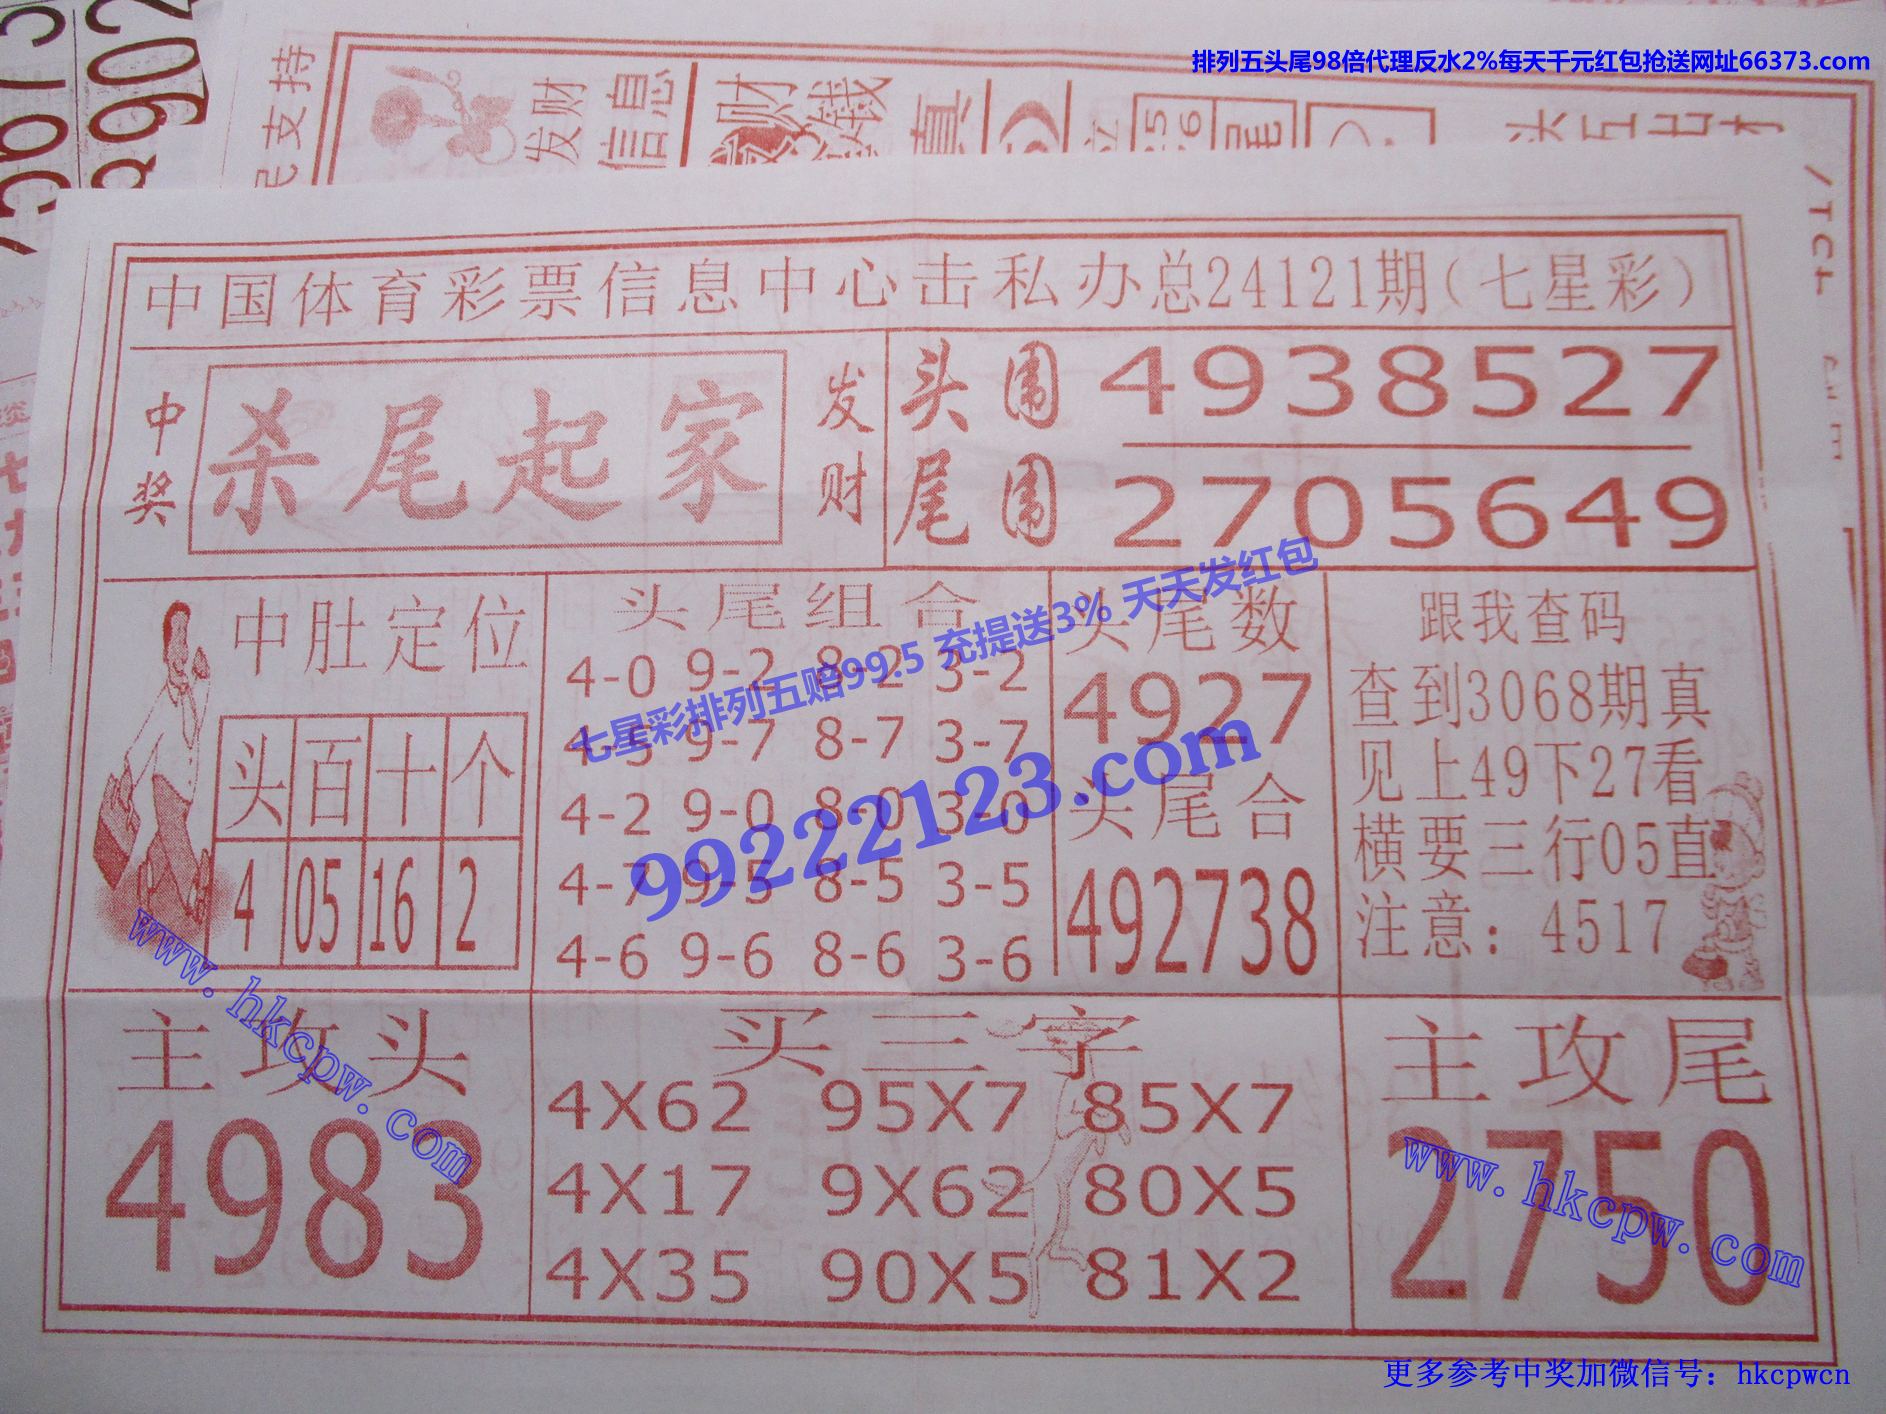 排列五头尾98倍代理反水2%每天千元红包抢送网址66373.com
8902
支持
发财
信息
财
真
尾
中国体育彩票信息中心击私办总24121期(七星彩)
中奖
杀尾起家
发财
头围 4938527
尾围 2705649
中肚定位
头 百 十 个
4 05 16 2
头尾组合
4-0 9-2 8-2 3-2
4-5 9-7 8-7 3-7
4-2 9-0 8-0 3-0
4-7 9-5 8-5 3-5
4-6 9-6 8-6 3-6
头尾数
4927
头尾合
492738
跟我查码
查到3068期真
见上49下27看
横要三行05直
注意：4517
七星彩排列五赔99.5 充提送3% 天天发红包
99222123.com
www.hkcpw.com
主攻头
4983
买三字
4X62 95X7 85X7
4X17 9X62 80X5
4X35 90X5 81X2
主攻尾
2750
www.hkcpw.com
更多参考中奖加微信号：hkcpwcn